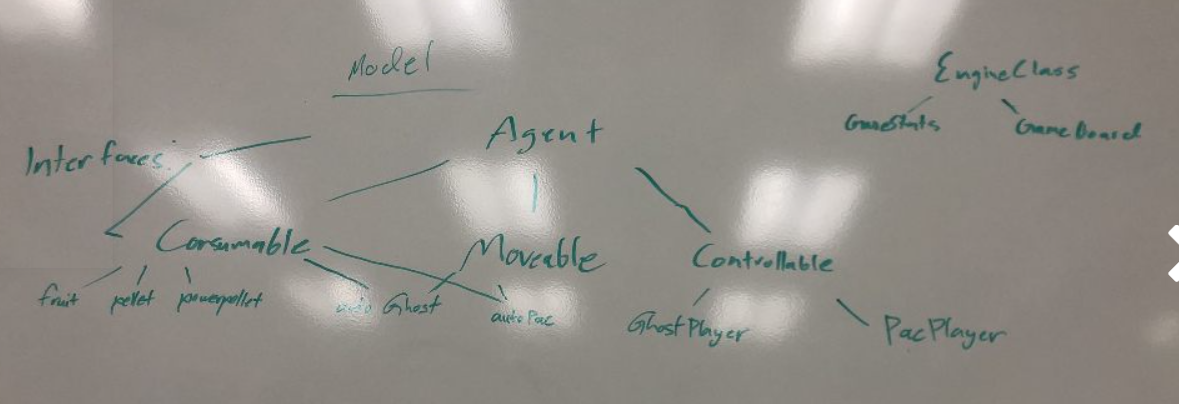 Model
EngineClass
GameStats
GameBoard
Agent
Interfaces:
Consumable
Moveable
Controllable
fruit
pellet
powerpellet
auto Ghost
autoPac
GhostPlayer
PacPlayer